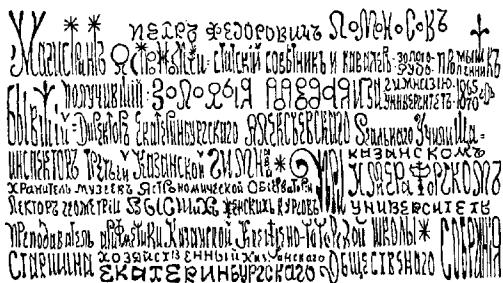 ПЕТРЪ ФЕДОРОВИЧЪ ЛОМНОСОВЪ
Магистрантъ Астрономіи = статскій совѣтникъ и кавалеръ = золото-рудо-промышленникъ
получившій = золотыя = гимназію = 1865
университетъ = 1870
Бывшій = Директоръ Екатеринбургскаго Алексѣевскаго Реальнаго Училища =
инспекторъ Третьей Казанской гимназіи при казанскомъ
хранитель музеевъ Астрономической Обсерваторіи Императорскомъ
лекторъ геометріи Высшихъ женскихъ курсовъ университетѣ
преподаватель Казанской школы
старшина хозяйственный Казанскаго Собранія
Екатеринбургскаго Общественнаго